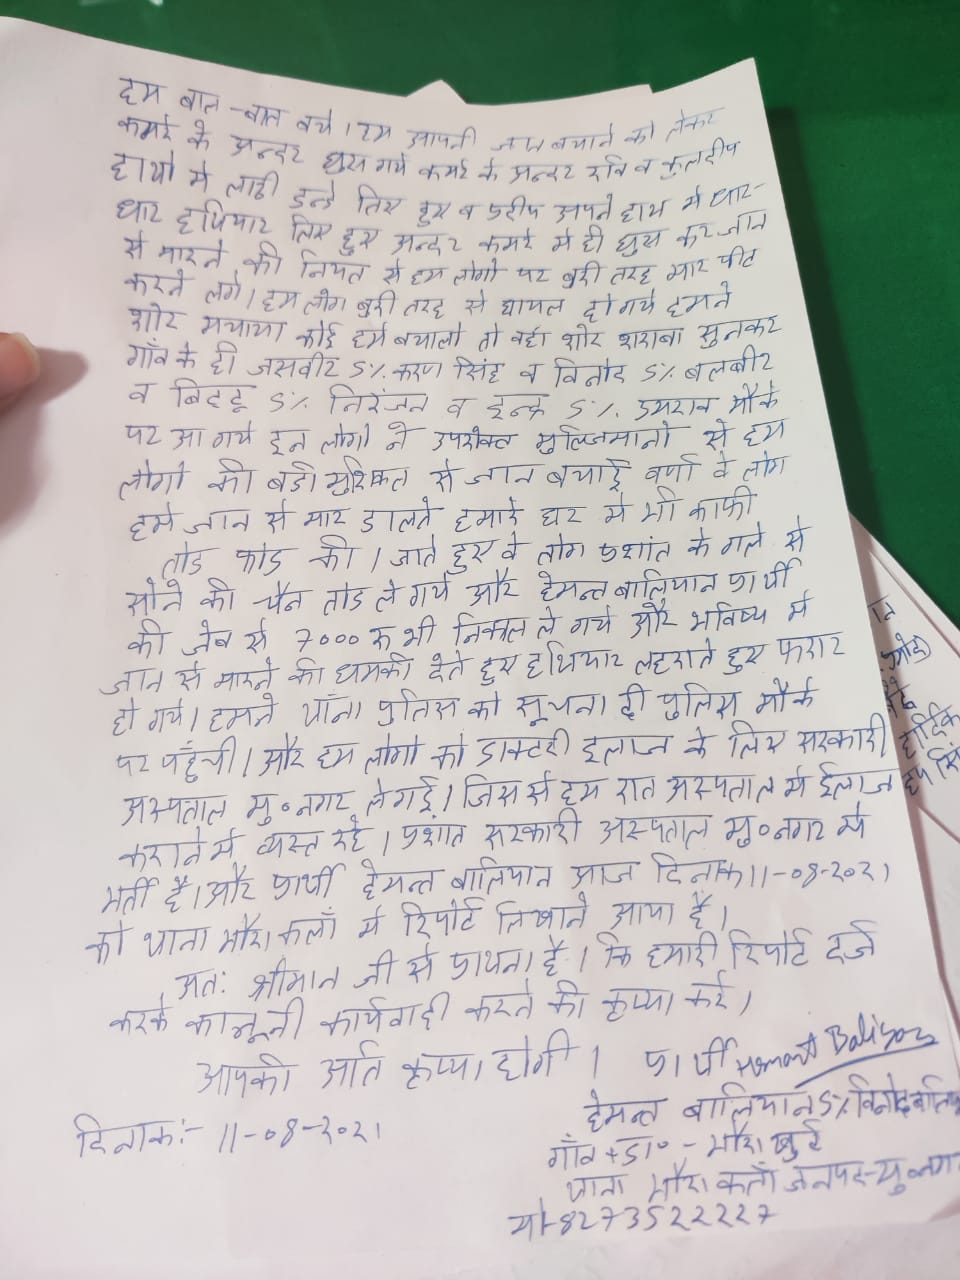 हम बाल-बाल बचे। हम आपनी जान बचाने को लेकर
कमरे के अन्दर घुस गये कमरे के अन्दर रवि व कुलदीप
हाथो मे लाठी डन्डे लिए हुए व प्रदीप अपने हाथ मे धार-
धार हथियार लिए हुए अन्दर कमरे मे ही घुस कर जान
से मारने की नियत से हम लोगो पर बुरी तरह मार पीट
करने लगे। हम लोग बुरी तरह से घायल हो गये हमने
शोर मचाया कोई हमे बचालो तो वहा शोर शराबा सुनकर
गाँव के ही जसवीर S/. करण सिंह व विनोद S/. बलबीर
व बिट्टू S/. निरंजन व इन्द्र S/. उमराव मौके
पर आ गये इन लोगो ने उपरोक्त मुल्जिमानो से हम
लोगो की बडी मुश्किल से जान बचाई वर्णा वे लोग
हमे जान से मार डालते हमारे घर मे भी काफी
तोड फोड की। जाते हुए वे लोग प्रशांत के गले से
सोने की चैन तोड ले गये और हेमन्त बालियान प्रार्थी
की जेब से 7000 रु भी निकाल ले गये और भविष्य मे
जान से मारने की धमकी देते हुए हथियार लहराते हुए फरार
हो गये। हमने थाँना पुलिस को सूचना दी पुलिस मौके
पर पहुँची। और हम लोगो को डाक्टरी इलाज के लिए सरकारी
अस्पताल मु०नगर ले गई। जिस से हम रात अस्पताल मे ईलाज
कराने मे व्यस्त रहे। प्रशांत सरकारी अस्पताल मु०नगर मे
भर्ती है। और प्रार्थी हेमन्त बालियान आज दिनाक 11-08-2021
को थाना भौरा कलाँ मे रिपोर्ट लिखाने आया है।
अतः श्रीमान जी से प्राथना है। कि हमारी रिपोर्ट दर्ज
करके कानूनी कार्यवाही करने की कृप्या करे।
आपकी अति कृप्या होगी। प्रार्थी Hemant Baliyan
हेमन्त बालियान S/. विनोद
गाँव + डा० - भौरा खुर्द
थाना भौरा कलाँ जनपद-मु०नगर
दिनाक:- 11-08-2021
मो- 8273522227